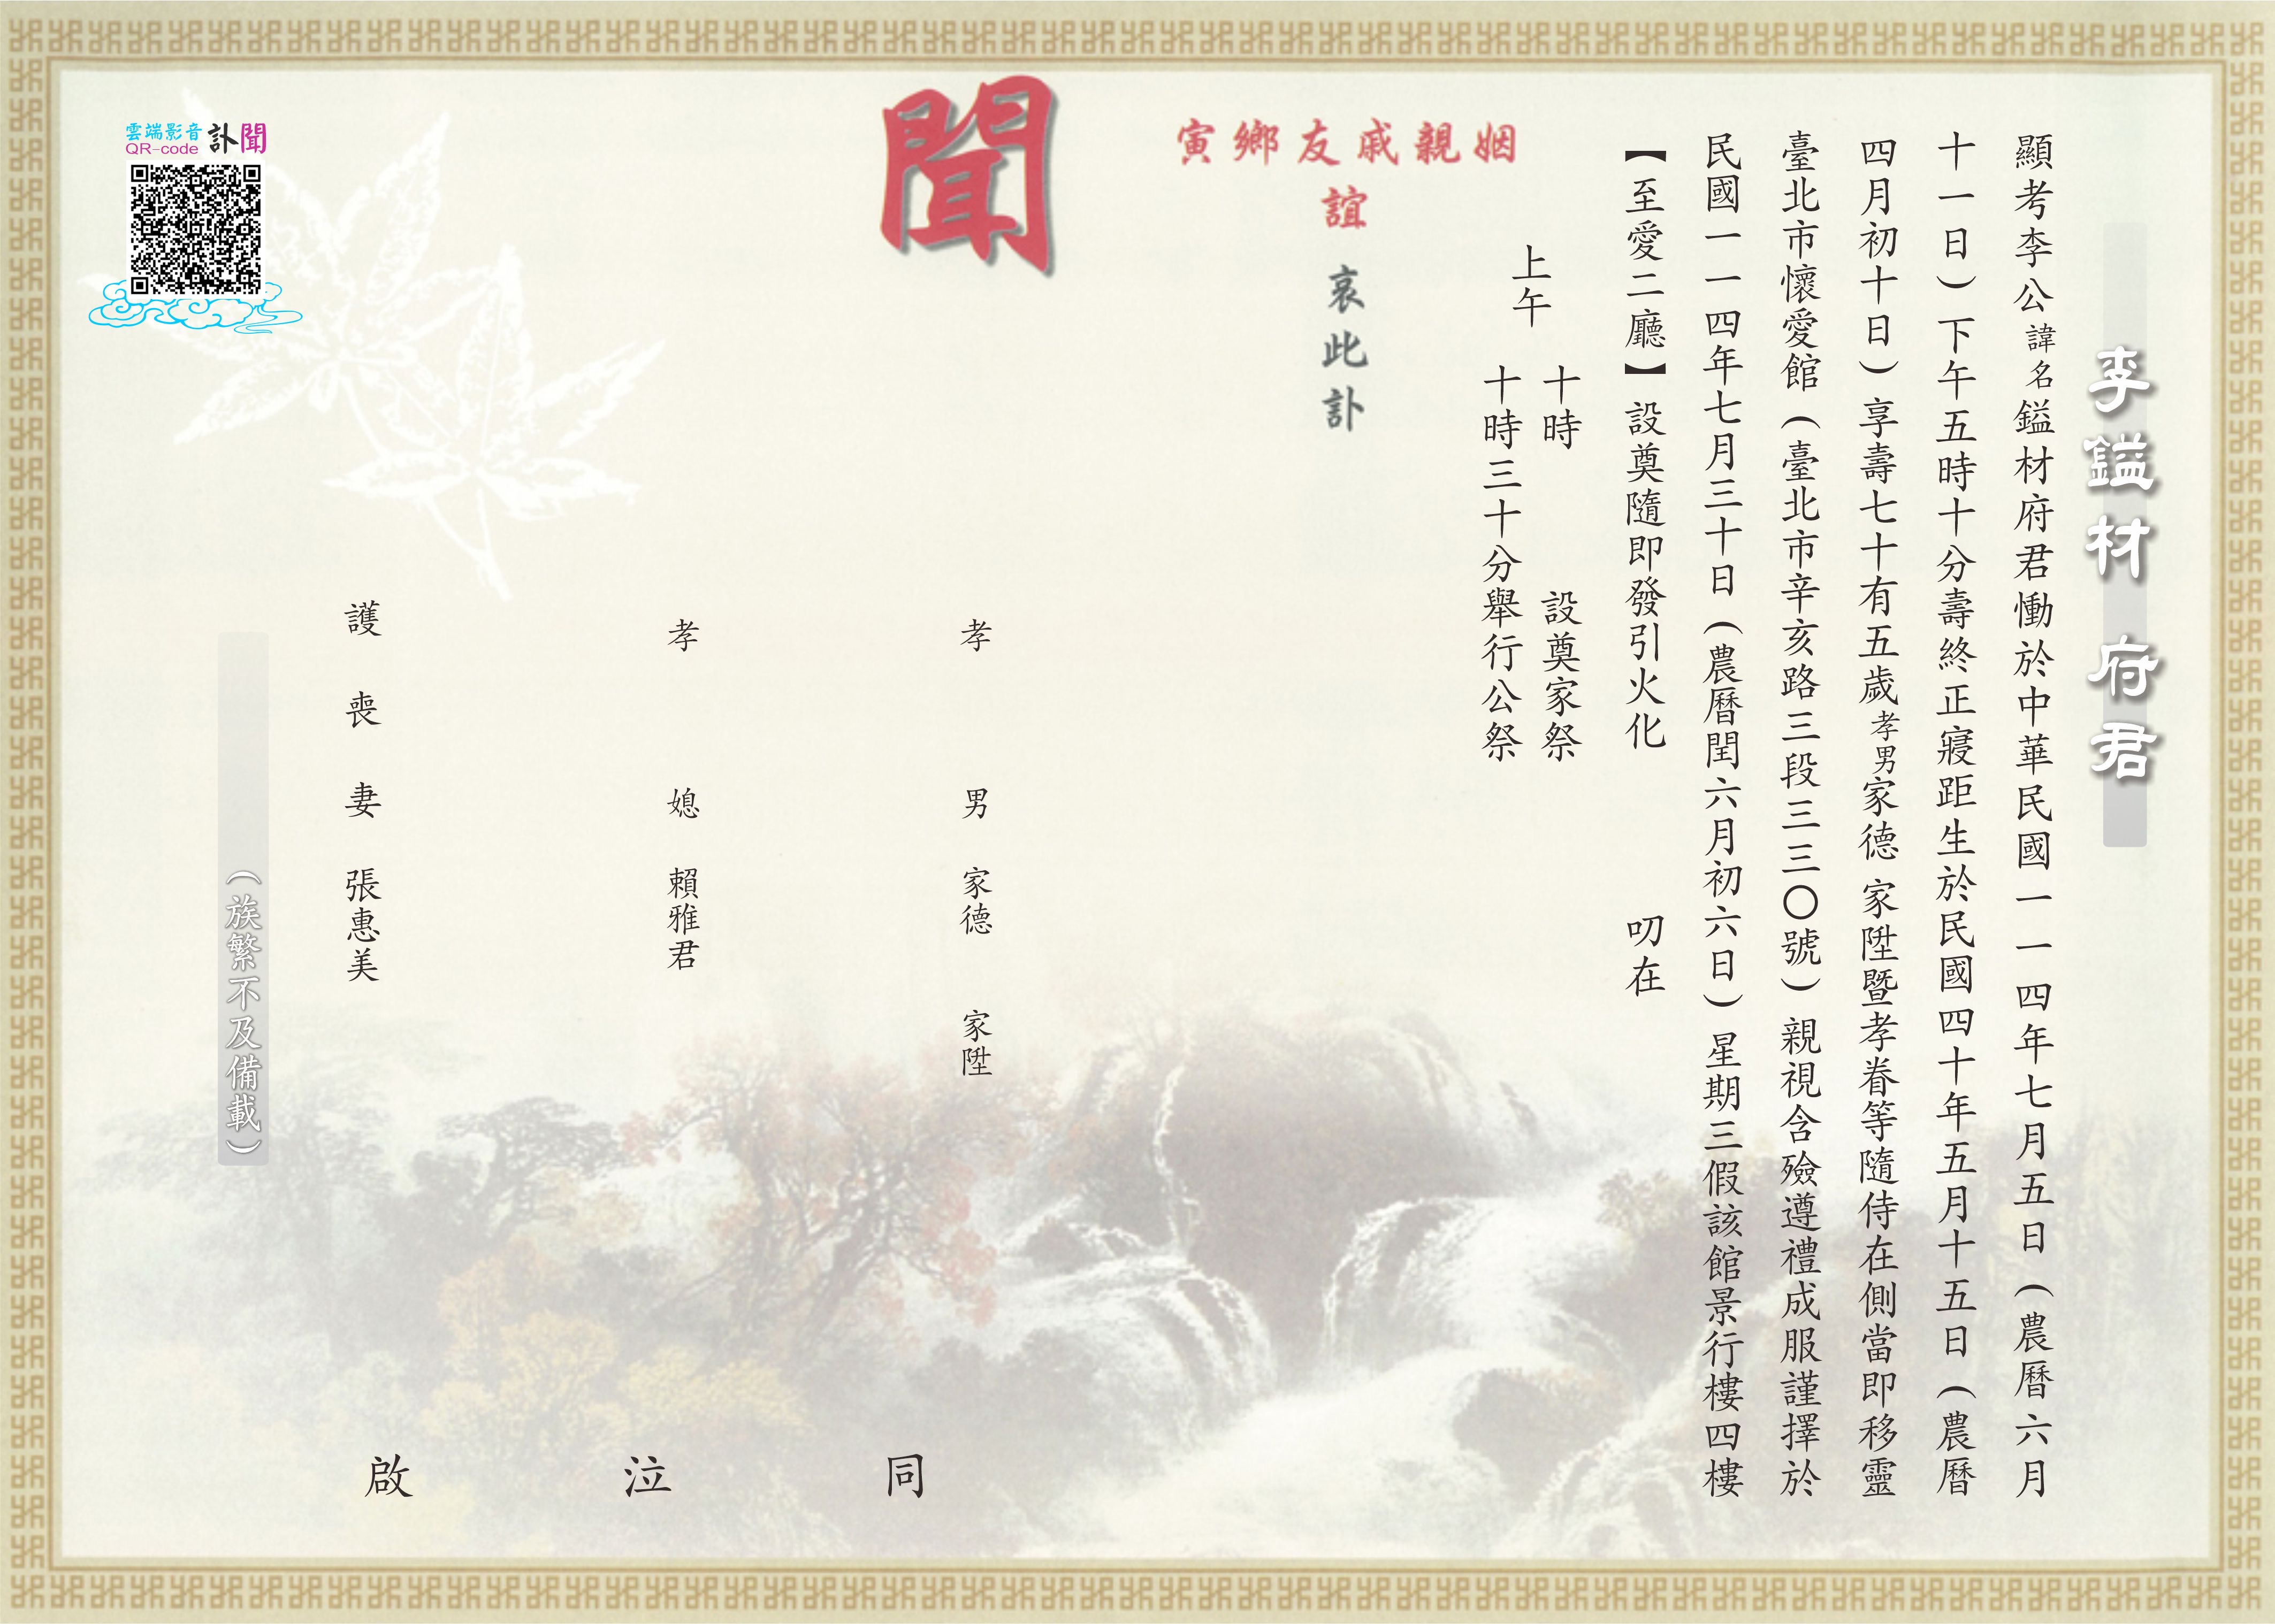 李鎰材 府君
顯考李公諱名鎰材府君慟於中華民國一一四年七月五日(農曆六月
十一日)下午五時十分壽終正寢距生於民國四十年五月十五日(農曆
四月初十日)享壽七十有五歲孝男家德 家陞暨孝眷等隨侍在側當即移靈
臺北市懷愛館(臺北市辛亥路三段三三〇號)親視含殮遵禮成服謹擇於
民國一一四年七月三十日(農曆閏六月初六日)星期三假該館景行樓四樓
【至愛二廳】設奠隨即發引火化 叨在
上午
十時 設奠家祭
十時三十分舉行公祭
姻親戚友鄉寅
誼
哀此訃
聞
孝男 家德 家陞
孝媳 賴雅君
護喪妻 張惠美
同泣啟
(族繁不及備載)
雲端影音
QR-code
訃聞